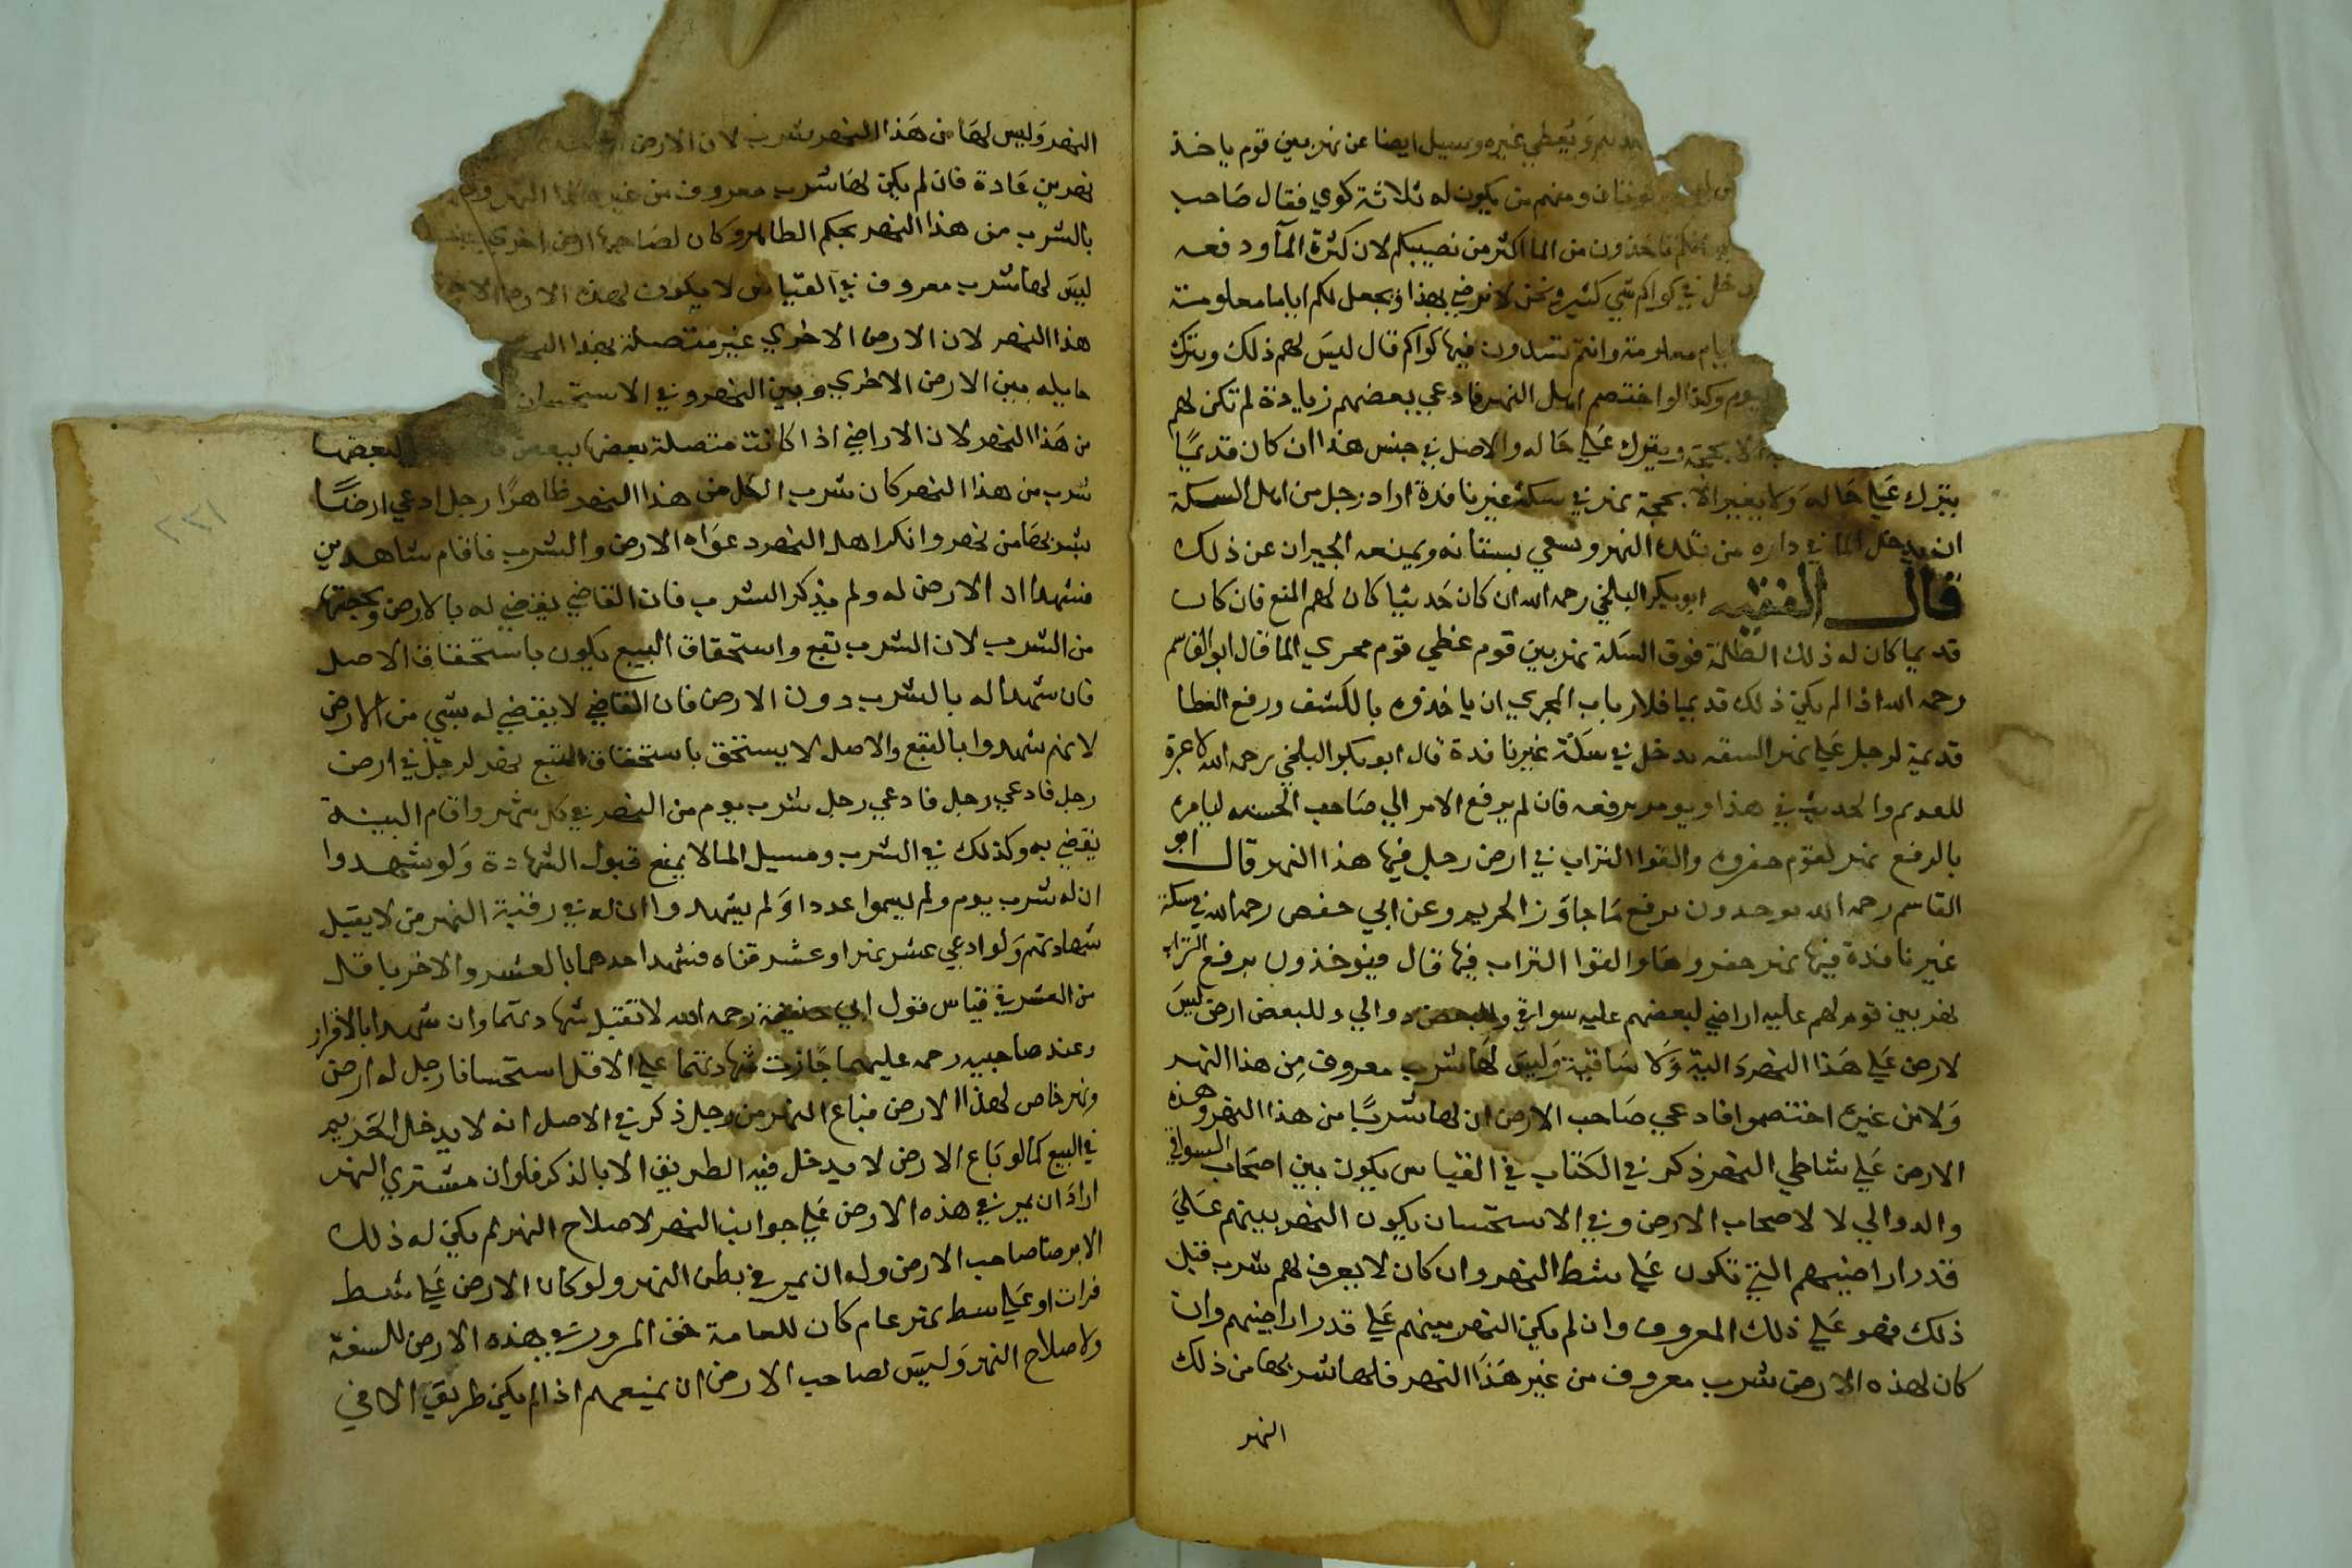 ويعطي غيره وسيل ايضا عن نهر بين قوم ياخذ
كوتان ومنهم من يكون له ثلاثة كوي فقال صاحب
تاخذون من الما اكثر من نصيبكم لان كثرة المآ ودفعه
في كواكم شي كثير ونحن لا نرضي بهذا ونجعل لكم اياما معلومة
ايام معلومة وانتم تسدون فيها كواكم قال ليس لهم ذلك ويترك
وكذا لو اختصم اهل النهر فادعي بعضهم زيادة لم تكن لهم
الا بحجة ويترك علي حاله والاصل في جنس هذا ان كان قديمًا
يترك علي حاله ولا يغير الا بحجة نهر في سكة غير نافذة اراد رجل من اهل السكة
ان يدخل الما في داره من تلك النهر وسقي بستانه ويمنعه الجيران عن ذلك
قال الفقيه ابو بكر البلخي رحمه الله ان كان حديثا كان لهم المنع فان كان
قديما كان له ذلك الظلة فوق السكة نهر بين قوم غطي قوم مجري الما قال ابو القاسم
رحمه الله اذا لم يكن ذلك قديما فلارباب المجري ان ياخذوه بالكشف ورفع الغطا
قديمة لرجل علي نهر السفه يدخل في سكة غير نافذة قال ابو بكر البلخي رحمه الله لا عبرة
للقديم والحديث في هذا ويومر برفعه فان لم يرفع الامر الي صاحب الحسبه ليامره
بالرفع نهر لقوم حفروه والقوا التراب في ارض رجل فيها هذا النهر قال ابو
القاسم رحمه الله يوخذون برفع ما جاوز الحريم وعن ابي حفص رحمه الله في سكة
غير نافذة فيها نهر حفروها والقوا التراب فيها قال فيوخذون برفع التراب
نهر بين قوم لهم عليه اراضي لبعضهم عليه سواقي وللبعض دوالي وللبعض ارض ليس
لارض علي هذا النهر دالية ولا ساقية وليس لها شرب معروف من هذا النهر
ولا من غيره اختصموا فادعي صاحب الارض ان لها شربًا من هذا النهر وهذه
الارض علي شاطي النهر ذكر في الكتاب في القياس يكون بين اصحاب السواقي
والدوالي لا لاصحاب الارض وفي الاستحسان يكون النهر بينهم علي
قدر اراضيهم التي تكون علي شط النهر وان كان لا يعرف لهم شرب قبل
ذلك فهو علي ذلك المعروف وان لم يكن النهر بينهم علي قدر اراضيهم وان
كان لهذه الارض شرب معروف من غير هذا النهر فلها شربها من ذلك
النهر
النهر وليس لها من هذا النهر شرب لان الارض
نهرين عادة فان لم يكن لها شرب معروف من غير هذا النهر
بالشرب من هذا النهر بحكم الظاهر وكان لصاحبها ارض اخري
ليس لها شرب معروف في القياس لا يكون لهذه الارض
هذا النهر لان الارض الاخري غير متصلة بهذا النهر
حايله بين الارض الاخري وبين النهر وفي الاستحسان
من هذا النهر لان الاراضي اذا كانت متصلة بعضها ببعض لبعضها
شرب من هذا النهر كان شرب الكل من هذا النهر ظاهرًا رجل ادعي ارضًا
بشربها من نهر وانكر اهل النهر دعواه الارض والشرب فاقام شاهدين
فشهدا ان الارض له ولم يذكر الشرب فان القاضي يقضي له بالارض وبحصتها
من الشرب لان الشرب تبع واستحقاق البيع يكون باستحقاق الاصل
فان شهدا له بالشرب دون الارض فان القاضي لا يقضي له بشي من الارض
لانهم شهدوا بالتبع والاصل لا يستحق باستحقاق التبع نهر لرجل في ارض
رجل فادعي رجل فادعي رجل شرب يوم من النهر في كل شهر واقام البينة
يقضي به وكذلك في الشرب ومسيل الما لا يمنع قبول الشهادة ولو شهدوا
ان له شرب يوم ولم يسموا عددا ولم يشهدوا ان له في رقبة النهر من لا يقبل
شهادتهم ولو ادعي عشر نهر او عشر قناه فشهد احدهما بالعشر والاخر باقل
من العشر في قياس قول ابي حنيفة رحمه الله لا تقبل شهادتهما وان شهدا بالاقرار
وعند صاحبيه رحمه عليهما جازت شهادتهما علي الاقل استحسانا رجل له ارض
ونهر خاص لهذا الارض فباع النهر من رجل ذكر في الاصل انه لا يدخل الحريم
في البيع كما لو باع الارض لا يدخل فيه الطريق الا بالذكر فلو ان مشتري النهر
اراد ان يمر في هذه الارض علي جوانب النهر لاصلاح النهر لم يكن له ذلك
الا برضا صاحب الارض وله ان يمر في بطن النهر ولو كان الارض علي شط
فرات او علي شط نهر عام كان للعامة حق المرور في هذه الارض للسفة
ولاصلاح النهر وليس لصاحب الارض ان يمنعهم اذا لم يكن طريق الا في
٢٣١